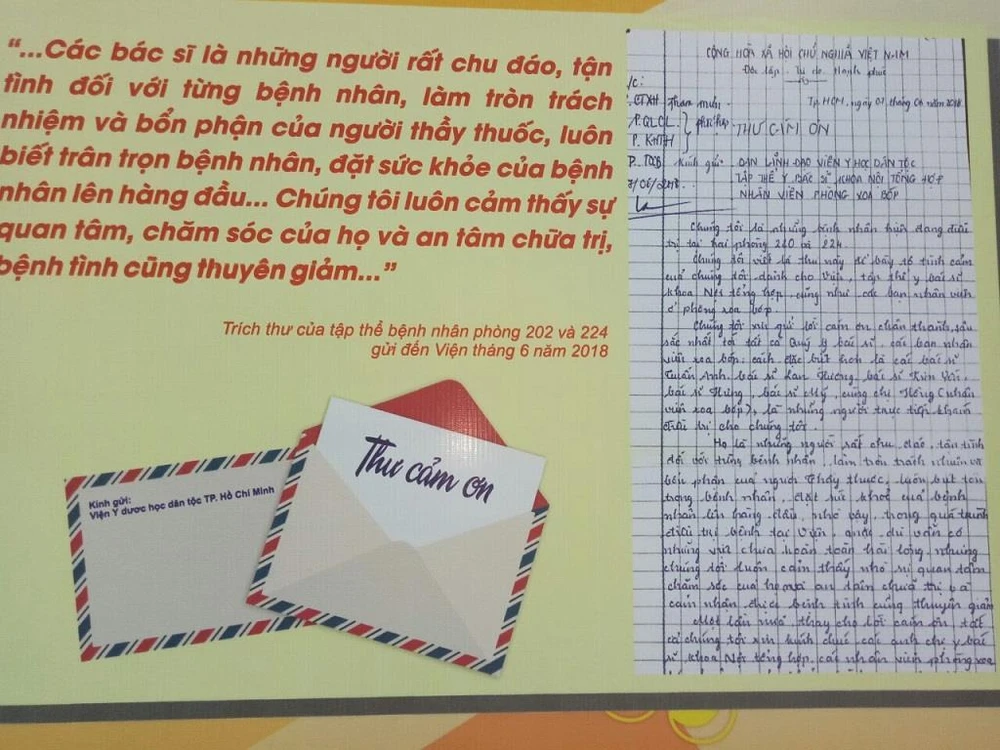 “...Các bác sĩ là những người rất chu đáo, tận
tình đối với từng bệnh nhân, làm tròn trách
nhiệm và bổn phận của người thầy thuốc, luôn
biết trân trọng bệnh nhân, đặt sức khỏe của bệnh
nhân lên hàng đầu... Chúng tôi luôn cảm thấy sự
quan tâm, chăm sóc của họ và an tâm chữa trị,
bệnh tình cũng thuyên giảm...”
Trích thư của tập thể bệnh nhân phòng 202 và 224
gửi đến Viện tháng 6 năm 2018
Kính gửi:
Viện Y dược học dân tộc TP. Hồ Chí Minh
Thư cảm ơn
CỘNG HÒA XÃ HỘI CHỦ NGHĨA VIỆT NAM
Độc lập - Tự do - Hạnh phúc
Tp. HCM, ngày 01 tháng 06 năm 2018
P. CTXH tham mưu
P. QLCL
P. KHTH
phối hợp
THƯ CẢM ƠN
P. TCCB
Kính gửi: BAN LÃNH ĐẠO VIỆN Y HỌC DÂN TỘC
TẬP THỂ Y BÁC SĨ KHOA NỘI TỔNG HỢP
NHÂN VIÊN PHÒNG XOA BÓP
Chúng tôi là những bệnh nhân hiện đang điều
trị tại hai phòng 220 và 224.
Chúng tôi viết lá thư này để bày tỏ tình cảm
của chúng tôi dành cho Viện, tập thể y bác sĩ
khoa Nội tổng hợp cũng như các bạn nhân viên
ở phòng xoa bóp.
Chúng tôi xin gửi lời cảm ơn chân thành, sâu
sắc nhất tới tất cả Quý y bác sĩ, các bạn nhân
viên xoa bóp, cách đặc biệt hơn là các bác sĩ
Tuấn Anh, bác sĩ Lan Hương, bác sĩ Kim Yến,
bác sĩ Hưng, bác sĩ Mỹ, cùng chị Hồng (nhân
viên xoa bóp), là những người trực tiếp khám
điều trị cho chúng tôi.
Họ là những người rất chu đáo, tận tình
đối với từng bệnh nhân, làm tròn trách nhiệm và
bổn phận của người Thầy thuốc, luôn biết tôn
trọng bệnh nhân, đặt sức khoẻ của bệnh
nhân lên hàng đầu, nhờ vậy, trong quá trình
điều trị bệnh tại Viện, mặc dù vẫn có
những vị chưa hoàn toàn hài lòng, nhưng
chúng tôi luôn cảm thấy nhờ sự quan tâm
chăm sóc của họ mà an tâm chữa trị và
cảm nhận được bệnh tình cũng thuyên giảm
Một lần nữa thay cho lời cảm ơn, tất
cả chúng tôi xin kính chúc các anh chị y bác
sĩ, khoa Nội tổng hợp, các nhân viên phòng xoa